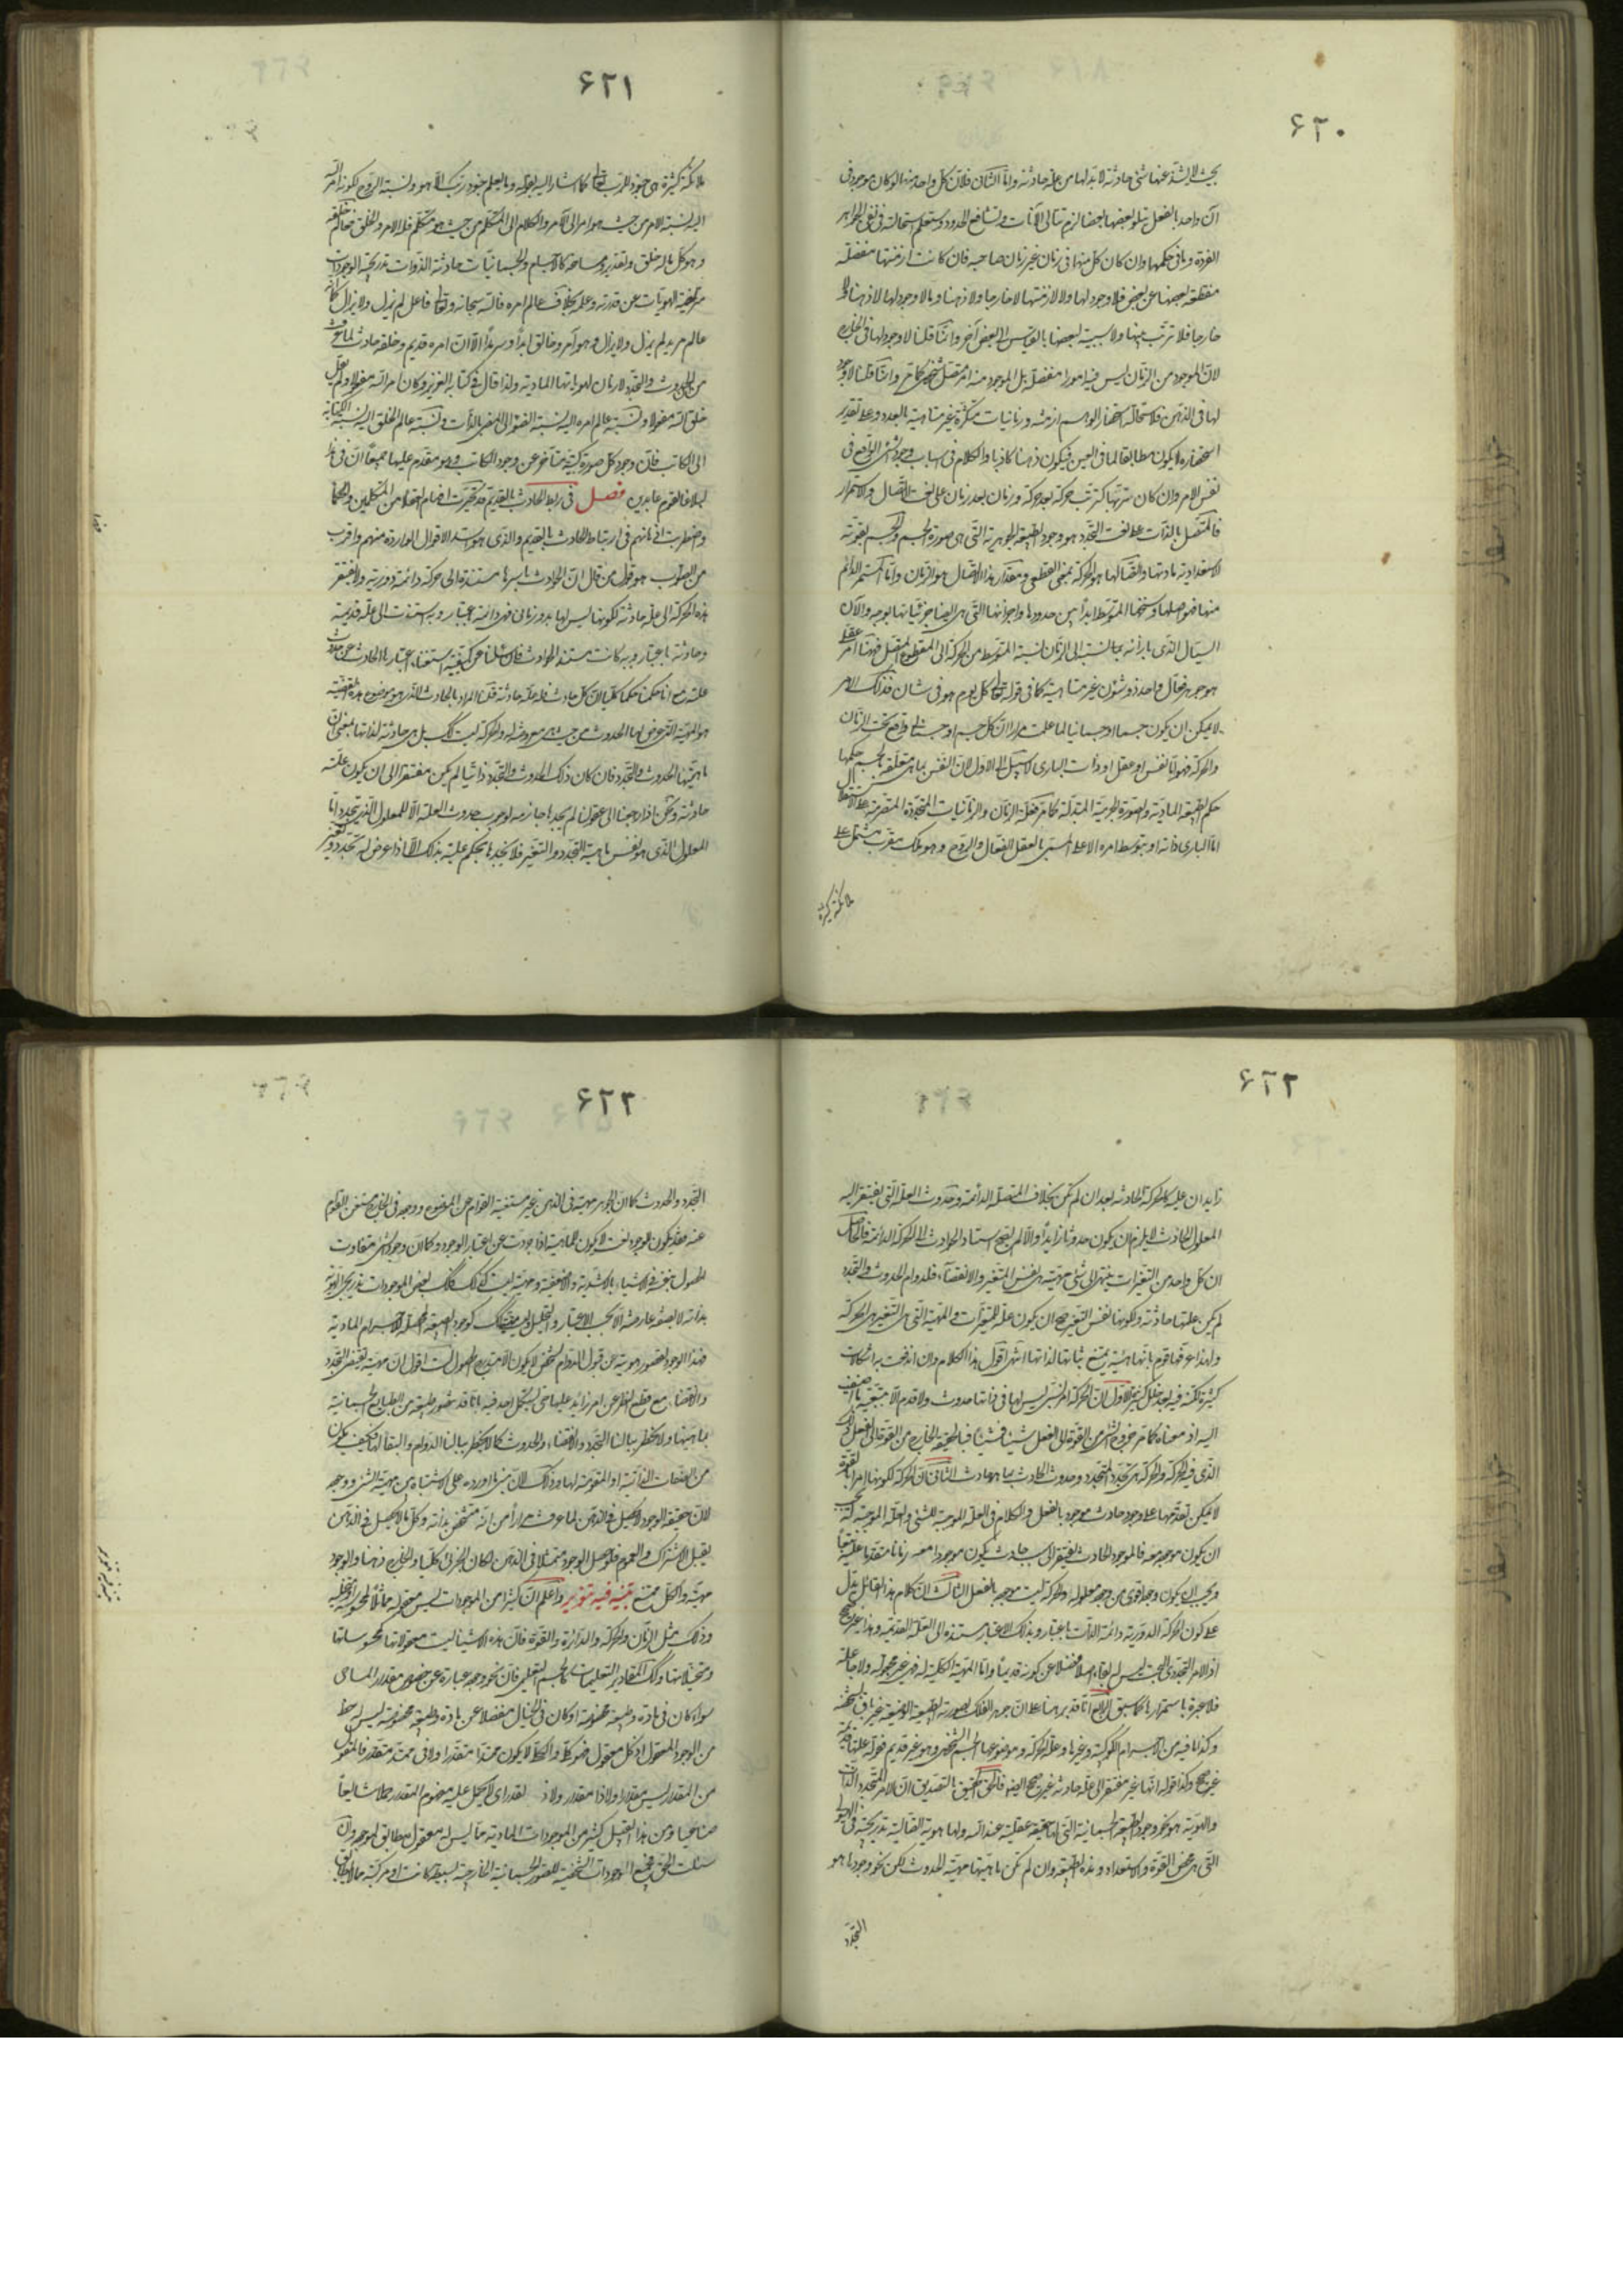 ٦٢٠
بحيث لا يشذ عنها شئ حادثة لابد لها من علة حادثة واما الثانى فلان كل واحد منها لو كان موجودا فى
آن واحد بالفعل يتلو بعضها بعضا لزم تتالى الآنات وتشافع الحدود وستعلم استحالته فى نفى الجواهر
الفردة وما فى حكمها وان كان كل منها فى زمان غير زمان صاحبه فان كانت ازمنتها منفصلة
منقطعة بعضها عن بعض فلا وجود لها ولا لازمنتها لا خارجا ولا ذهنا وما لا وجود لها لا ذهنا ولا
خارجا فلا ترتب بينها ولا سببية لبعضها بالقياس الى بعض آخر وانما قلنا لا وجود لها فى الخارج
لان الموجود من الزمان ليس فيه امورا منفصلة بل الموجود منه امر متصل شخصى كما مر وانما قلنا لا وجود
لها فى الذهن فلاستحالة استحضار الوهم ازمنة وزمانيات متكثرة غير متناهية بالعدد وعلى تقدير
استحضاره لا يكون مطابقا لما فى العين فيكون ذهنا كاذبا والكلام فى اسباب وجود الشئ الواقع فى
نفس الامر وان كان ترتبها كترتب حركة بعد حركة وزمان بعد زمان على نعت الاتصال والاستمرار
فالمتصل بالذات على نعت التجدد هو وجود الطبيعة الجوهرية التى هى صورة الجسم والجسم بقوته
الاستعدادية مادتها واتصالها هو الحركة بمعنى القطع ومقدار هذا الاتصال هو الزمان واما المستمر الدائم
منها فهو اصلها وسنخها المتوسط ابدا بين حدودها واجزائها التى هى ايضا جزئياتها بوجه والآن
السيال الذى بازائه بما نسبته الى الزمان نسبة التوسط من الحركة الى المقطوع المتصل فهناك امر عقلى
هو جوهر فعال واحد ذو شئون غير متناهية كما فى قوله تعالى كل يوم هو فى شان فذلك الامر
لا يمكن ان يكون جسما او جسمانيا لما علمت مرارا ان كل جسم او جسمانى واقع تحت الزمان
والحركة فهو اما نفس او عقل او ذات البارى لا سبيل الى الاول لان النفس بما هى متعلقة بالجسم حكمها
حكم الطبيعة المادية والصورة الجرمية المتبدلة كما مر فعلة الزمان والزمانيات المتجددة المتصرمة على الاتصال
اما البارى ذاته او بتوسط امره الاعلى المسمى بالعقل الفعال والروح وهو ملك مقرب مشتمل على
ملائكة كثيرة
٦٢١
ملائكة كثيرة هى جنود للرب تعالى كما اشار اليه بقوله وما يعلم جنود ربك الا هو ونسبة الروح لكونه امر الله
اليه نسبة الامر من حيث هو امر الى الآمر والكلام الى المتكلم من حيث هو متكلم فله الامر والخلق فعالم خلقه
وهو كل ما له خلق وتقدير ومساحة كالاجسام والجسمانيات حادثة الذوات تدريجية الوجودات
متراخية الهويات عن قدرته وعلمه بخلاف عالم امره فالله سبحانه وتعالى فاعل لم يزل ولا يزال كما انه
عالم مريد لم يزل ولا يزال وهو آمر وخالق ابدا وسرمدا الا ان امره قديم وخلقه حادث لما عرفت
من الحدوث والتجدد لازمان لهوياتها المادية ولذا قال فى كتابه العزيز وكان امر الله مفعولا ولم يقل
خلق الله مفعولا ونسبة عالم امره اليه نسبة الضوء الى المضئ بالذات ونسبة عالم الخلق اليه نسبة الكتابة
الى الكاتب فان وجود كل صورة كتبية متأخر عن وجود الكاتب وهو مقدم عليها جميعا ان فى هذا
لبلاغا لقوم عابدين فصل فى ربط الحادث بالقديم قد تحيرت افهام العقلاء من المتكلمين والحكماء
واضطربت اذهانهم فى ارتباط الحادث بالقديم والذى هو اسد الاقوال الواردة منهم واقرب
من الصواب هو قول من قال ان الحوادث باسرها مستندة الى حركة دائمة دورية ولا تفتقر
هذه الحركة الى علة حادثة لكونها ليس لها بدو زمانى فهى دائمة باعتبار وبه استندت الى علة قديمة
وحادثة باعتبار وبه كانت مستند الحوادث فان سئلنا عن كيفية استغناء اعتبارها الحادث عن حدوث
علته مع انا حكمنا حكما كليا ان كل حادث فله علة حادثة قلنا المراد بالحادث الذى هو موضوع هذه القضية
هو المهية التى عرض لها الحدوث من حيث هى معروضة له والحركة ليست كذلك بل هى حادثة لذاتها بمعنى ان
ماهيتها الحدوث والتجدد فان كان ذلك الحدوث والتجدد ذاتيا لم يكن مفتقرا الى ان يكون علته
حادثة ونحن اذا رجعنا الى عقولنا لم نجدها جازمة لوجوب حدوث العلة الا للمعلول الذى يتجدد اما
المعلول الذى هو نفس ماهية التجدد والتغير فلا نجدها تحكم عليه بذلك الا اذا عرض له تجدد وتغير
٦٢٢
زايدان عليه كالحركة الحادثة بعد ان لم تكن بخلاف المتصلة الدائمة وحدوث العلة التى يفتقر اليه
المعلول الحادث لا يلزم ان يكون حدوثا زايدا والا لم يصح استناد الحوادث الى الحركة الدائمة فالحاصل
ان كل واحد من التغيرات ينتهى الى شئ مهيته هى نفس المتغير والانقضاء فلدوام الحدوث والتجدد
لم يكن علتها حادثة ولكونها نفس التغير صح ان يكون علة للمتغيرات والمهية التى هى التغير هى الحركة
ولهذا عرفها قوم بانها هيئة يمتنع ثباتها لذاتها انتهى اقول هذا الكلام وان اندفعت به اشكالات
كثيرة لكنه فيه بعد خلل كثير الاول ان الحركة امر نسبى ليس لها فى ذاتها حدوث ولا قدم الا بتبعية ما اضيفت
اليه اذ معناه كما مر خروج الشئ من القوة الى الفعل شيئا فشيئا فبالحقيقة الخارج من القوة الى الفعل ذلك
الذى فيه الحركة والحركة هى تجدد المتجدد وحدوث الحادث بما هو حادث الثانى ان الحركة لكونها امرا بالقوة
لا يمكن تقدمها على وجود حادث موجود بالفعل والكلام فى العلة الموجبة للشئ والعلة الموجبة له يجب
ان يكون موجودا معه فالموجود الحادث يفتقر الى سبب حادث يكون موجودا معه زمانا متقدما عليه طبعا
ويجب ان يكون وجوده اقوى من وجود معلوله والحركة ليست موجودة بالفعل الثالث ان كلام هذا القائل يدل
على كون الحركة الدورية دائمة الذات باعتبار وبذلك الاعتبار مستندة الى العلة القديمة وهذا غير صحيح
اذ الامر التجددى البحت ليس له بقاء اصلا فضلا عن كونه قديما واما المهية الكلية له فهى غير مجعولة ولا جاعلة
فلا عبرة باستمرارها كما سبق الرابع انا قد برهنا على ان جوهر الفلك بصورته الطبيعية الوضعية غير باق الشخص
وكذا ما فيه من الاجرام الكوكبية وغيرها وعلة الحركة وموضوعها الجسم الشخصى وهو غير قديم فقوله علتها قديمة
غير صحيح وكذا قوله انها غير مفتقر الى علة حادثة غير صحيح ايضا فالحق الحقيق بالتصديق ان الامر المتجدد الذات
والهوية هو نحو وجود الطبيعة الجسمانية التى لها حقيقة عقلية عند الله ولها هوية اتصالية تدريجية فى الهيولى
التى هى محض القوة والاستعداد وهذه الطبيعة وان لم تكن ماهيتها مهية الحدوث لكن نحو وجودها هو
التجدد
٦٢٣
التجدد والحدوث كما ان الجوهر مهيته فى الذهن غير مستغنية القوام عن الموضوع ووجوده فى الخارج مستغنى القوام
عنه فقد يكون للوجود نعت لا يكون للماهية اذا جردت عن اعتبار الوجود وكما ان وجود الشئ متفاوت
الحصول بنفسه فى الاشياء بالاشدية والاضعفية ومهيته ليست كذلك فكذلك بعض الموجودات تدريجى الهوية
بذاته لا بصفة عارضة الا بحسب الاعتبار والتحليل وليس مهيته كذلك كوجود الطبيعة المحصلة للاجرام المادية
فهذا الوجود لقصور هويته عن قبول الدوام الشخصى لا يكون الا متدرج الحصول لست اقول ان مهيته تقتضى التجدد
والانقضاء مع قطع النظر عن امر زايد عليها حتى يستشكل احد فيه بانا قد نتصور طبيعة من الطبايع الجسمانية
بماهيتها ولا يخطر ببالنا التجدد والانقضاء والحدوث كما لا يخطر ببالنا الدوام والبقاء لها فكيف يكون
من الصفات الذاتية او المقومة لها وذلك لان مبنى ما اورده على الاشتباه بين مهية الشئ ووجوده
لان حقيقة الوجود لا يحصل فى الذهن لما عرفت مرارا من انه متشخص بذاته وكل ما لا يحصل فى الذهن
يقبل الاشتراك والعموم فلو حصل الوجود متمثلا فى الذهن لكان الجزئى كليا والخارج ذهنا والوجود
مهية والكل ممتنع تنبيه فيه تنوير واعلم ان كثيرا من الموجودات ليس معقوله مماثلا لمحسوسه ومتخيله
وذلك مثل الزمان والحركة والدائرة والقوة فان هذه الاشياء ليست معقولاتها كمحسوساتها
ومتخيلاتها وكذلك المقادير التعليميات كالجسم التعليمى فان نحو وجوده عبارة عن خصوص مقدار المساحى
سواء كان فى مادة وطبيعة مخصوصة او كان فى الخيال منفصلا عن مادة وطبيعة مخصوصة ليس له حظ
من الوجود المعقول اذ كل معقول فهو كلى والكلى لا يكون ممتدا متقدرا ولا فى ممتد متقدر فالمعقول
من المقدار ليس مقدارا ولا ذا مقدار ولا ذو تقدر اى لا يحمل عليه مفهوم المقدار حملا شايعا
صناعيا ومن هذا القبيل كثير من الموجودات المادية مما ليس له معقول مطابق لموجوده وان
سئلت الحق فجميع الموجودات الشخصية للصور الجسمانية الخارجية بسيطة كانت او مركبة مما لا يطابق
تنبيه فيه تنوير